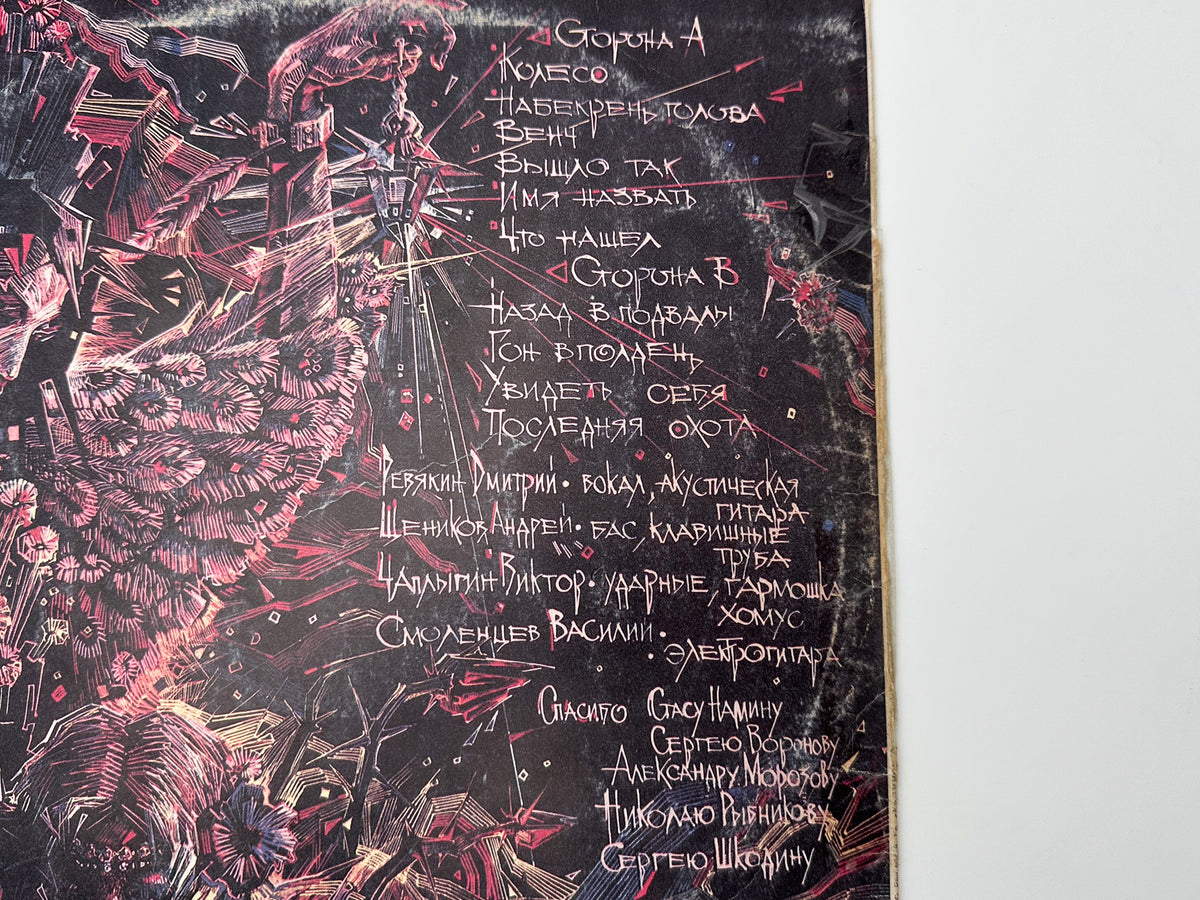 Сторона А
Колесо
Набекрень голова
Венч
Вышло так
Имя назвать
Что нашел
Сторона В
Назад в подвалы
Гон в полдень
Увидеть себя
Последняя охота
Ревякин Дмитрий · вокал, акустическая
гитара
Щеников Андрей · бас, клавишные
труба
Чаплыгин Виктор · ударные, гармошка
хомус
Смоленцев Василий ·
· электрогитара
Спасибо Стасу Намину
Сергею Воронову
Александру Морозову
Николаю Рыбникову
Сергею Шкодину